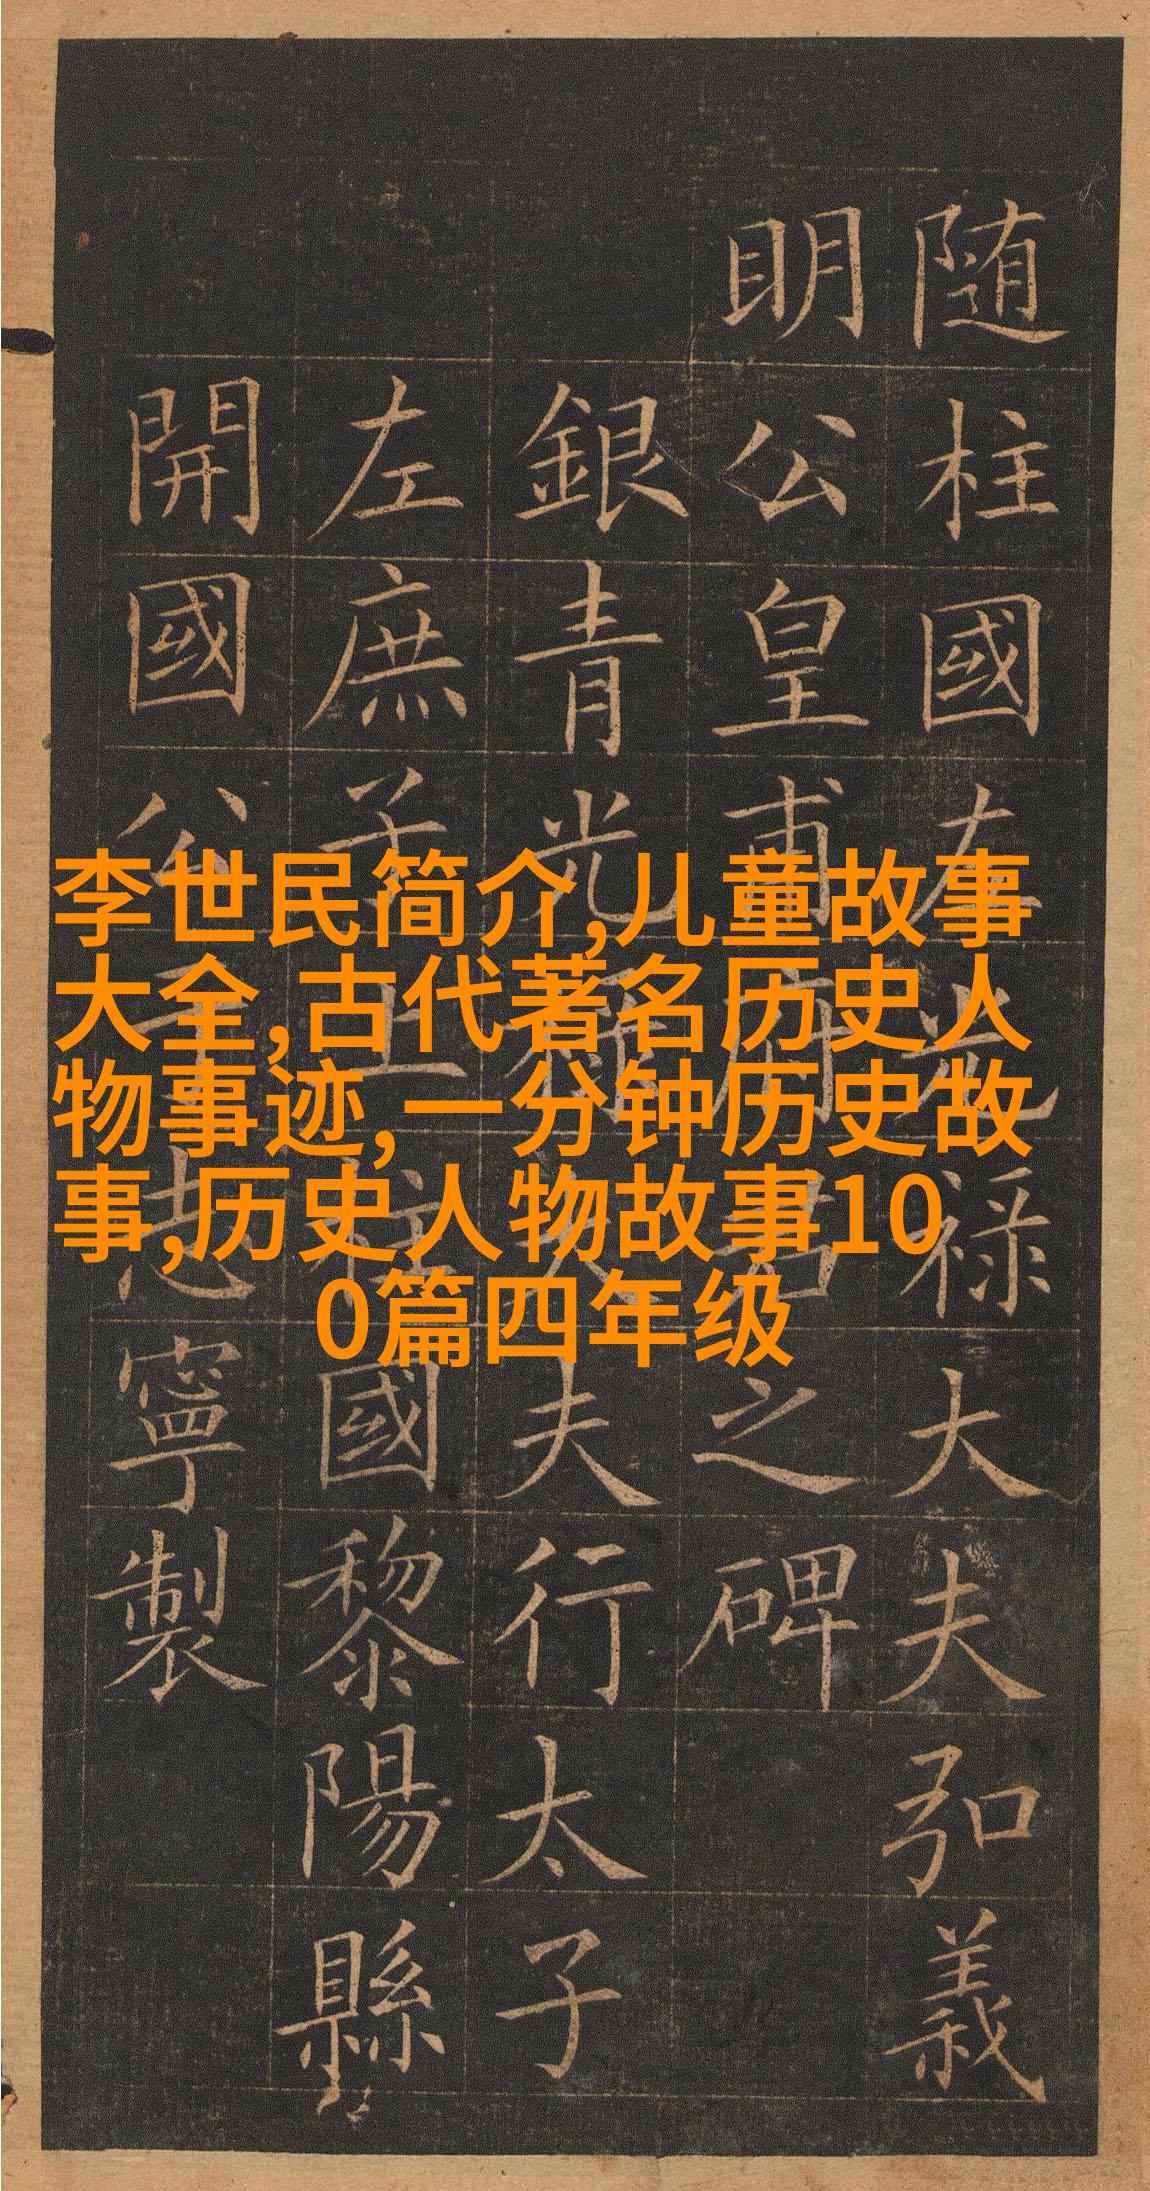 随柱國左光祿大夫弘義
明公皇甫府君之碑
銀青光祿大夫行太子
左庶子上柱國黎陽縣
開國公于志寧製
李世民简介,儿童故事
大全,古代著名历史人
物事迹,一分钟历史故
事,历史人物故事10
0篇四年级